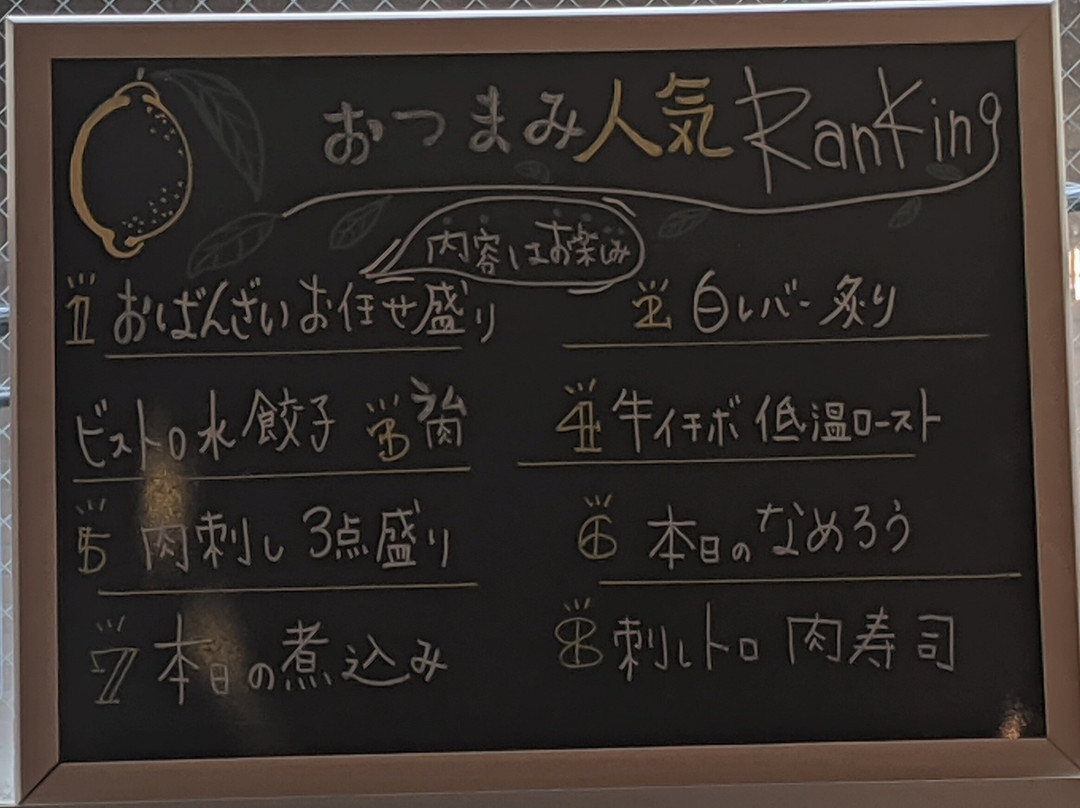 おつまみ人気Ranking
内容はお楽しみ
1 おばんざいお任せ盛り
2 白レバー炙り
ビストロ水餃子 3 ラム肉
4 牛イチボ低温ロースト
5 肉刺し3点盛り
6 本日のなめろう
7 本日の煮込み
8 刺しトロ肉寿司